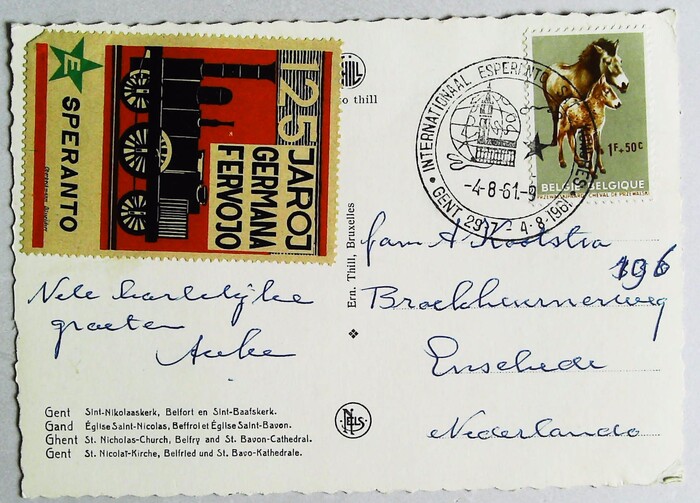 E
SPERANTO
125
JAROJ
GERMANA
FERVOJO
HILL
to thill
• INTERNATIONAAL ESPERANTO
-4-8-61.-9
GENT, 29-7 - 4-8-1961
1F+50C
BELGIE-BELGIQUE
Ern. Thill, Bruxelles
Fam A Kootstra
196
Broekheurnerweg
Enschede
Nederlando
Vele hartelijke
groeten
Auke
NELS
Gent Sint-Nikolaaskerk, Belfort en Sint-Baafskerk.
Gand Église Saint-Nicolas, Beffroi et Église Saint-Bavon.
Ghent St. Nicholas-Church, Belfry and St. Bavon-Cathedral.
Gent St. Nicolat-Kirche, Belfried und St. Bavo-Kathedrale.